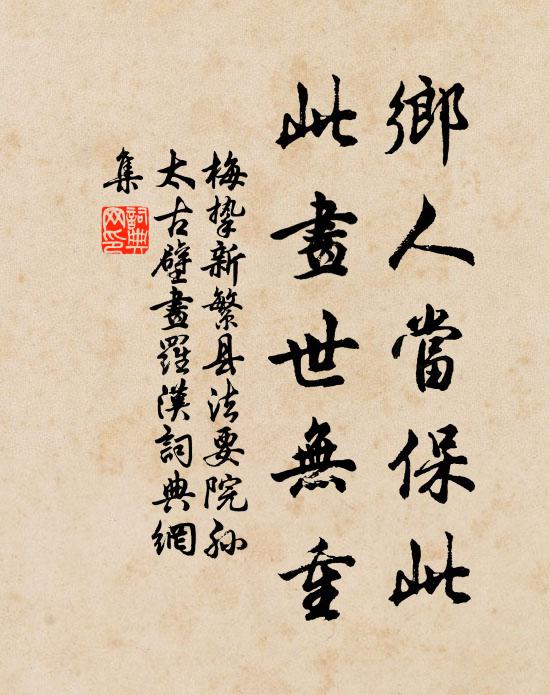 鄉人當保此
此畫世無重
梅摯新繁县法要院孙
太古壁畫羅漢詞典網
集
詞典网印